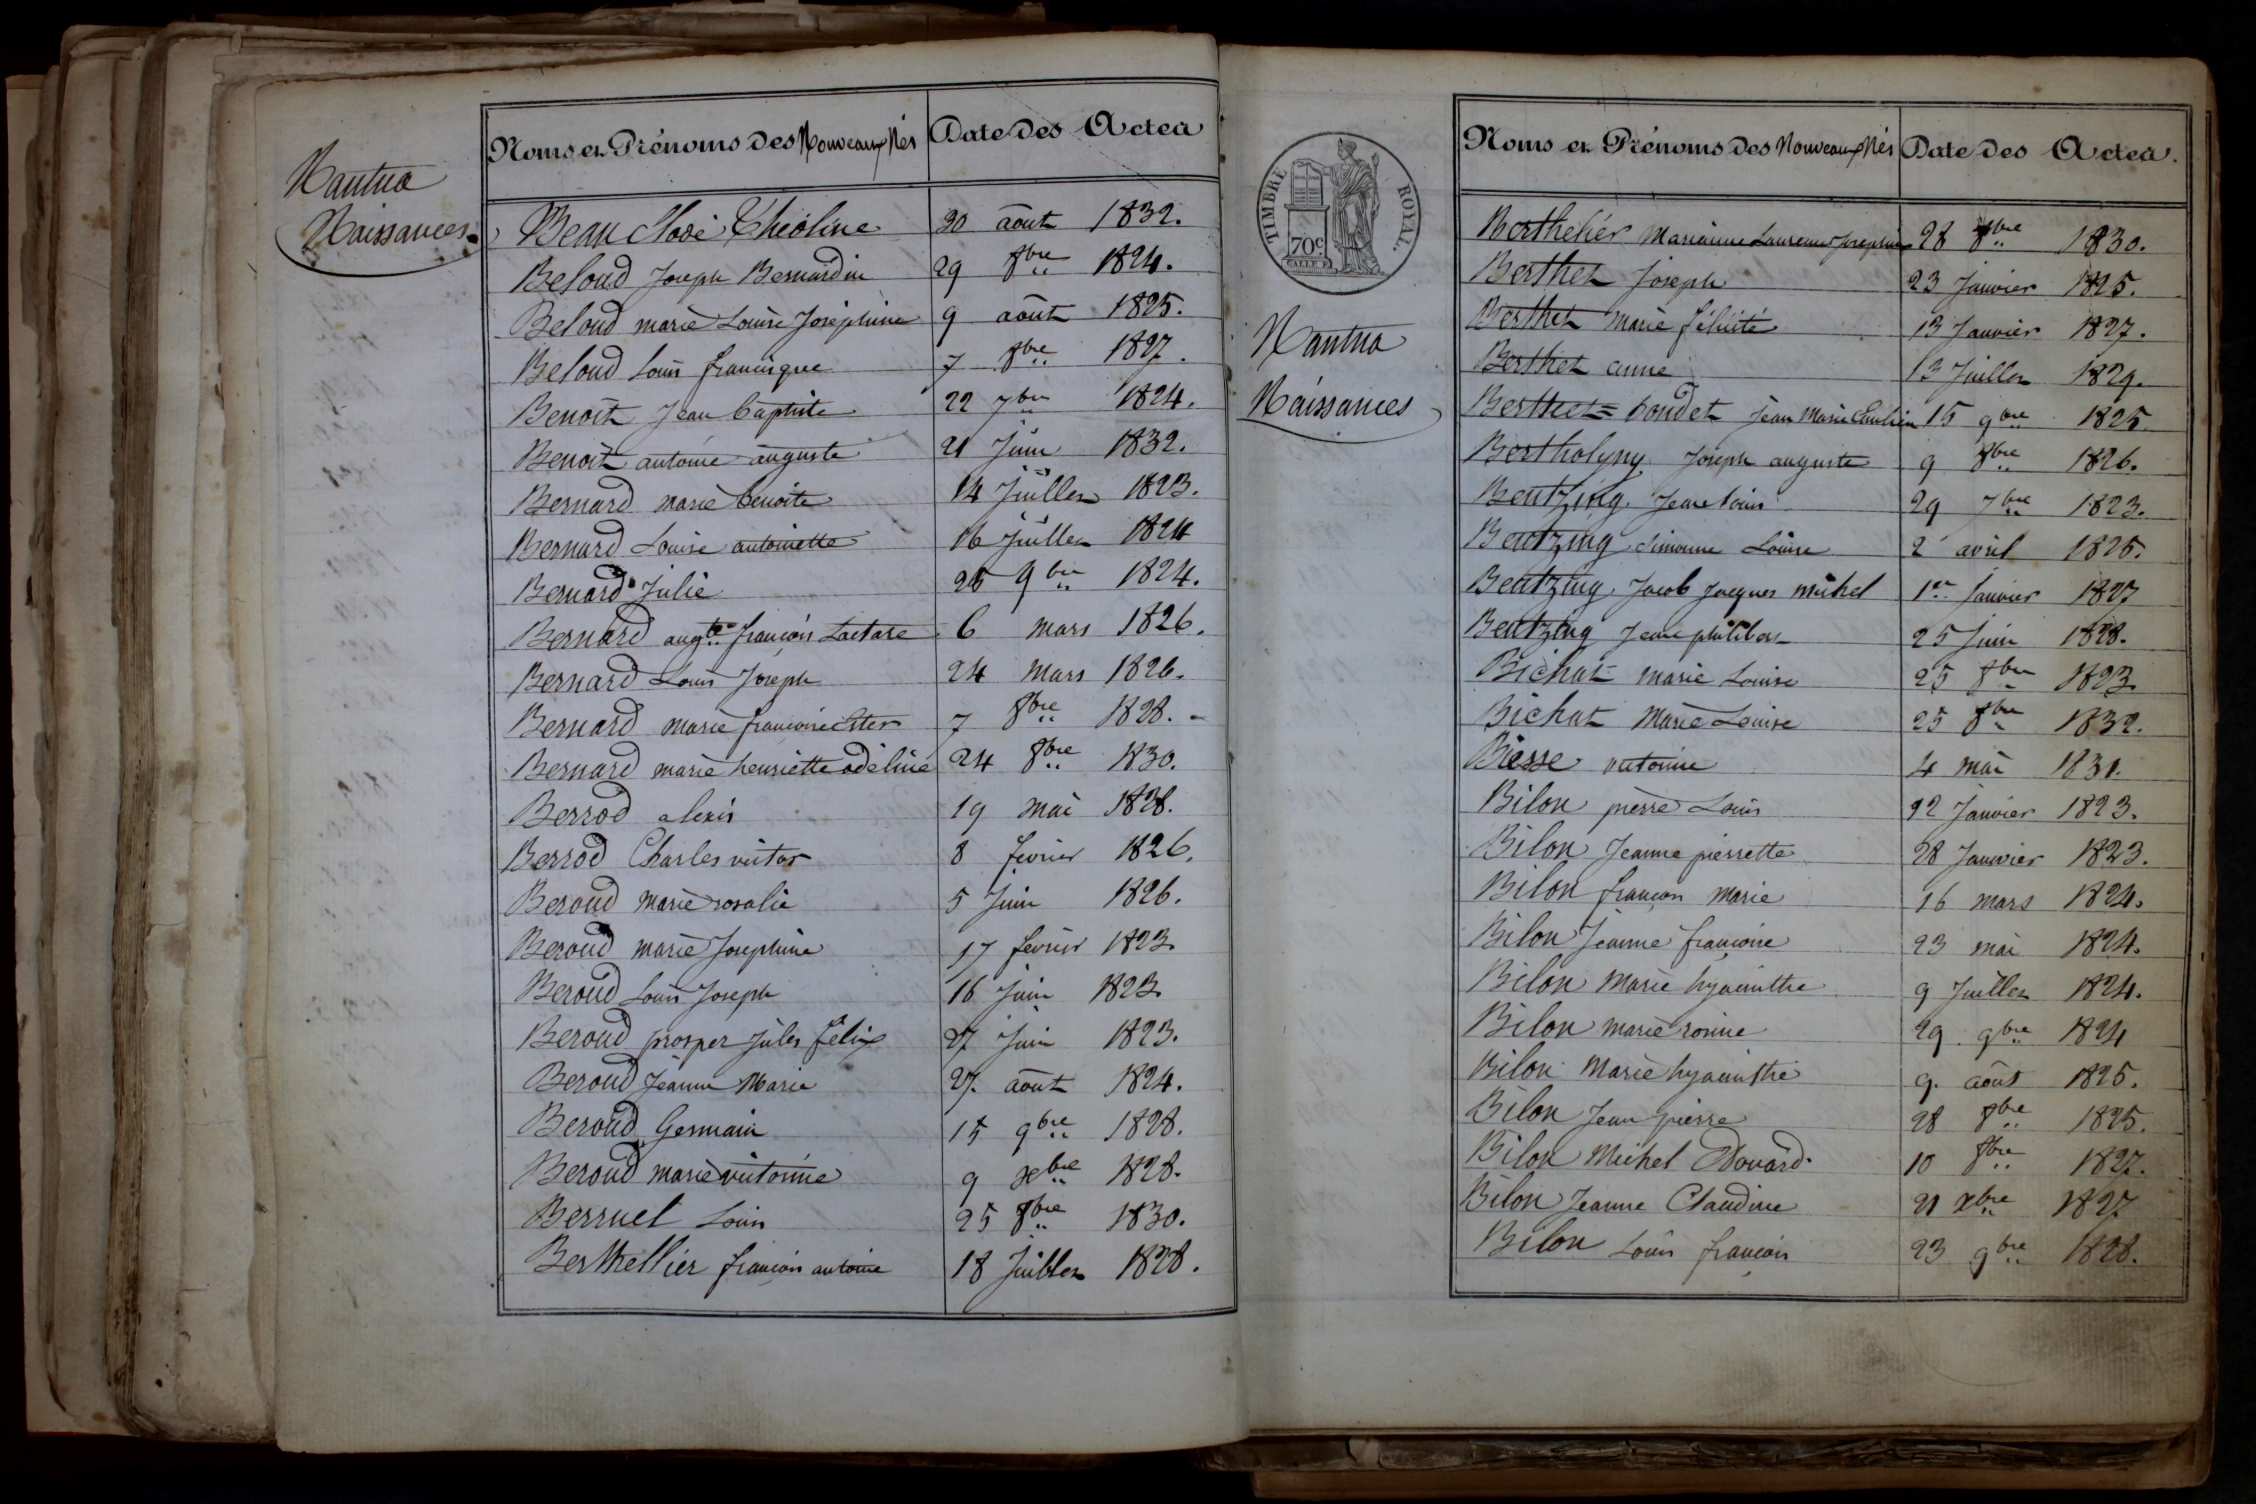 Nantua
Naissances
Noms et Prénoms des Nouveaux Nés Date des Actes
Beau Théoline 20 août 1832.
Beloud Joseph Bernardin 29 8bre 1824.
Beloud marie Louise Joséphine 9 août 1825.
Beloud Louis francisque 7 8bre 1827.
Benoit Jean baptiste 22 7bre 1824.
Benoit antoine auguste 21 Juin 1832.
Bernard marie benoite 14 Juillet 1823.
Bernard Louise antoinette 16 Juillet 1824
Bernard Julie 25 9bre 1824.
Bernard augte françois Laetare 6 mars 1826.
Bernard Louis Joseph 24 mars 1826.
Bernard marie françoise Ester 7 8bre 1828.
Bernard marie henriette adéline 24 8bre 1830.
Berrod alexis 19 mai 1828.
Berrod Charles victor 8 fevrier 1826.
Beroud marie rosalie 5 Juin 1826.
Beroud marie Josephine 17 fevrier 1823
Beroud Louis Joseph 16 Juin 1823
Beroud prosper Jules félix 27 Juin 1823.
Beroud Jeanne Marie 27. août 1824.
Beroud Germain 15 9bre 1828.
Beroud marie victorine 9 Xbre 1828.
Berruel Louis 25 8bre 1830.
Berthellier françois antoine 18 Juillet 1828.
TIMBRE ROYAL
70c
Nantua
Naissances
Noms et Prénoms des Nouveaux Nés Date des Actes.
Berthelier Marianne Laurence Josephine 28 8bre 1830.
Berthet Joseph 23 Janvier 1825.
Berthet Marie félicité 13 Janvier 1827.
Berthet anne 13 Juillet 1829.
Berthet = bondet Jean Marie 15 9bre 1825.
Bertholyny Joseph auguste 9 8bre 1826.
Beutzing Jean Louis 29 7bre 1823.
Beutzing Simonne Louise 2 avril 1825.
Beutzing Jacob Jacques michel 1er Janvier 1827
Beutzing Jean philibert 25 Juin 1828.
Bichat marie Louise 25 8bre 1823
Bichat Marie Louise 25 8bre 1832.
Biesse victorine 4 mai 1831.
Bilon pierre Louis 12 Janvier 1823.
Bilon Jeanne pierrette 28 Janvier 1823.
Bilon françois marie 16 mars 1824.
Bilon Jeanne françoise 23 mai 1824.
Bilon Marie hyacinthe 9 Juillet 1824.
Bilon marie rosine 29 9bre 1824
Bilon Marie hyacinthe 9. août 1825.
Bilon Jean pierre 28 8bre 1825.
Bilon Michel Edouard 10 8bre 1827.
Bilon Jeanne Claudine 21 Xbre 1827
Bilon Louis françois 23 9bre 1828.